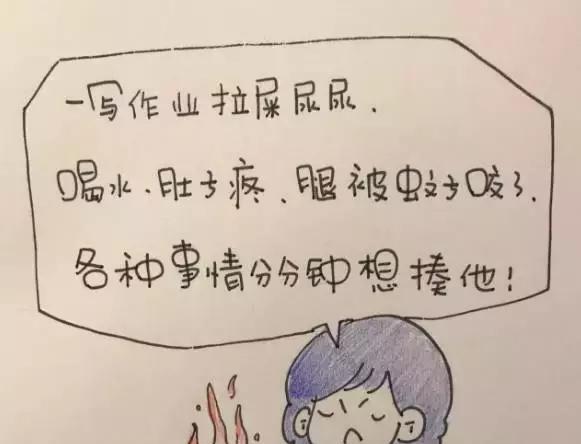 一写作业拉屎尿尿.
喝水、肚子疼、腿被蚊子咬了.
各种事情分分钟想揍他!